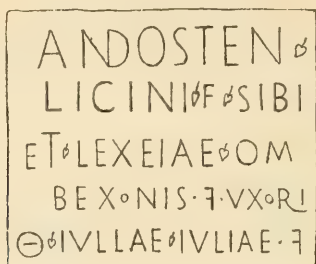 ANDOSTEN
LICINI F SIBI
ET LEXEIAE OM
BEXONIS · F · VXORI
Θ IVLLAE IVLIAE · F